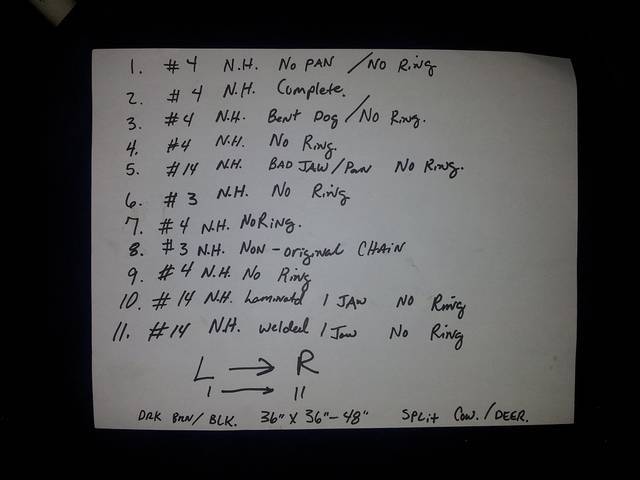 1. #4 N.H. No PAN / No Ring
2. #4 N.H. Complete.
3. #4 N.H. Bent Dog / No Ring.
4. #4 N.H. No Ring.
5. #14 N.H. BAD JAW / Pan No Ring.
6. #3 N.H. No Ring
7. #4 N.H. No Ring.
8. #3 N.H. Non-original CHAIN
9. #4 N.H. No Ring
10. #14 N.H. Laminated 1 JAW No Ring
11. #14 N.H. welded 1 Jaw No Ring
L → R
1 → 11
DRK BRN/BLK. 36" X 36"-48" SPLit Cow./DEER.